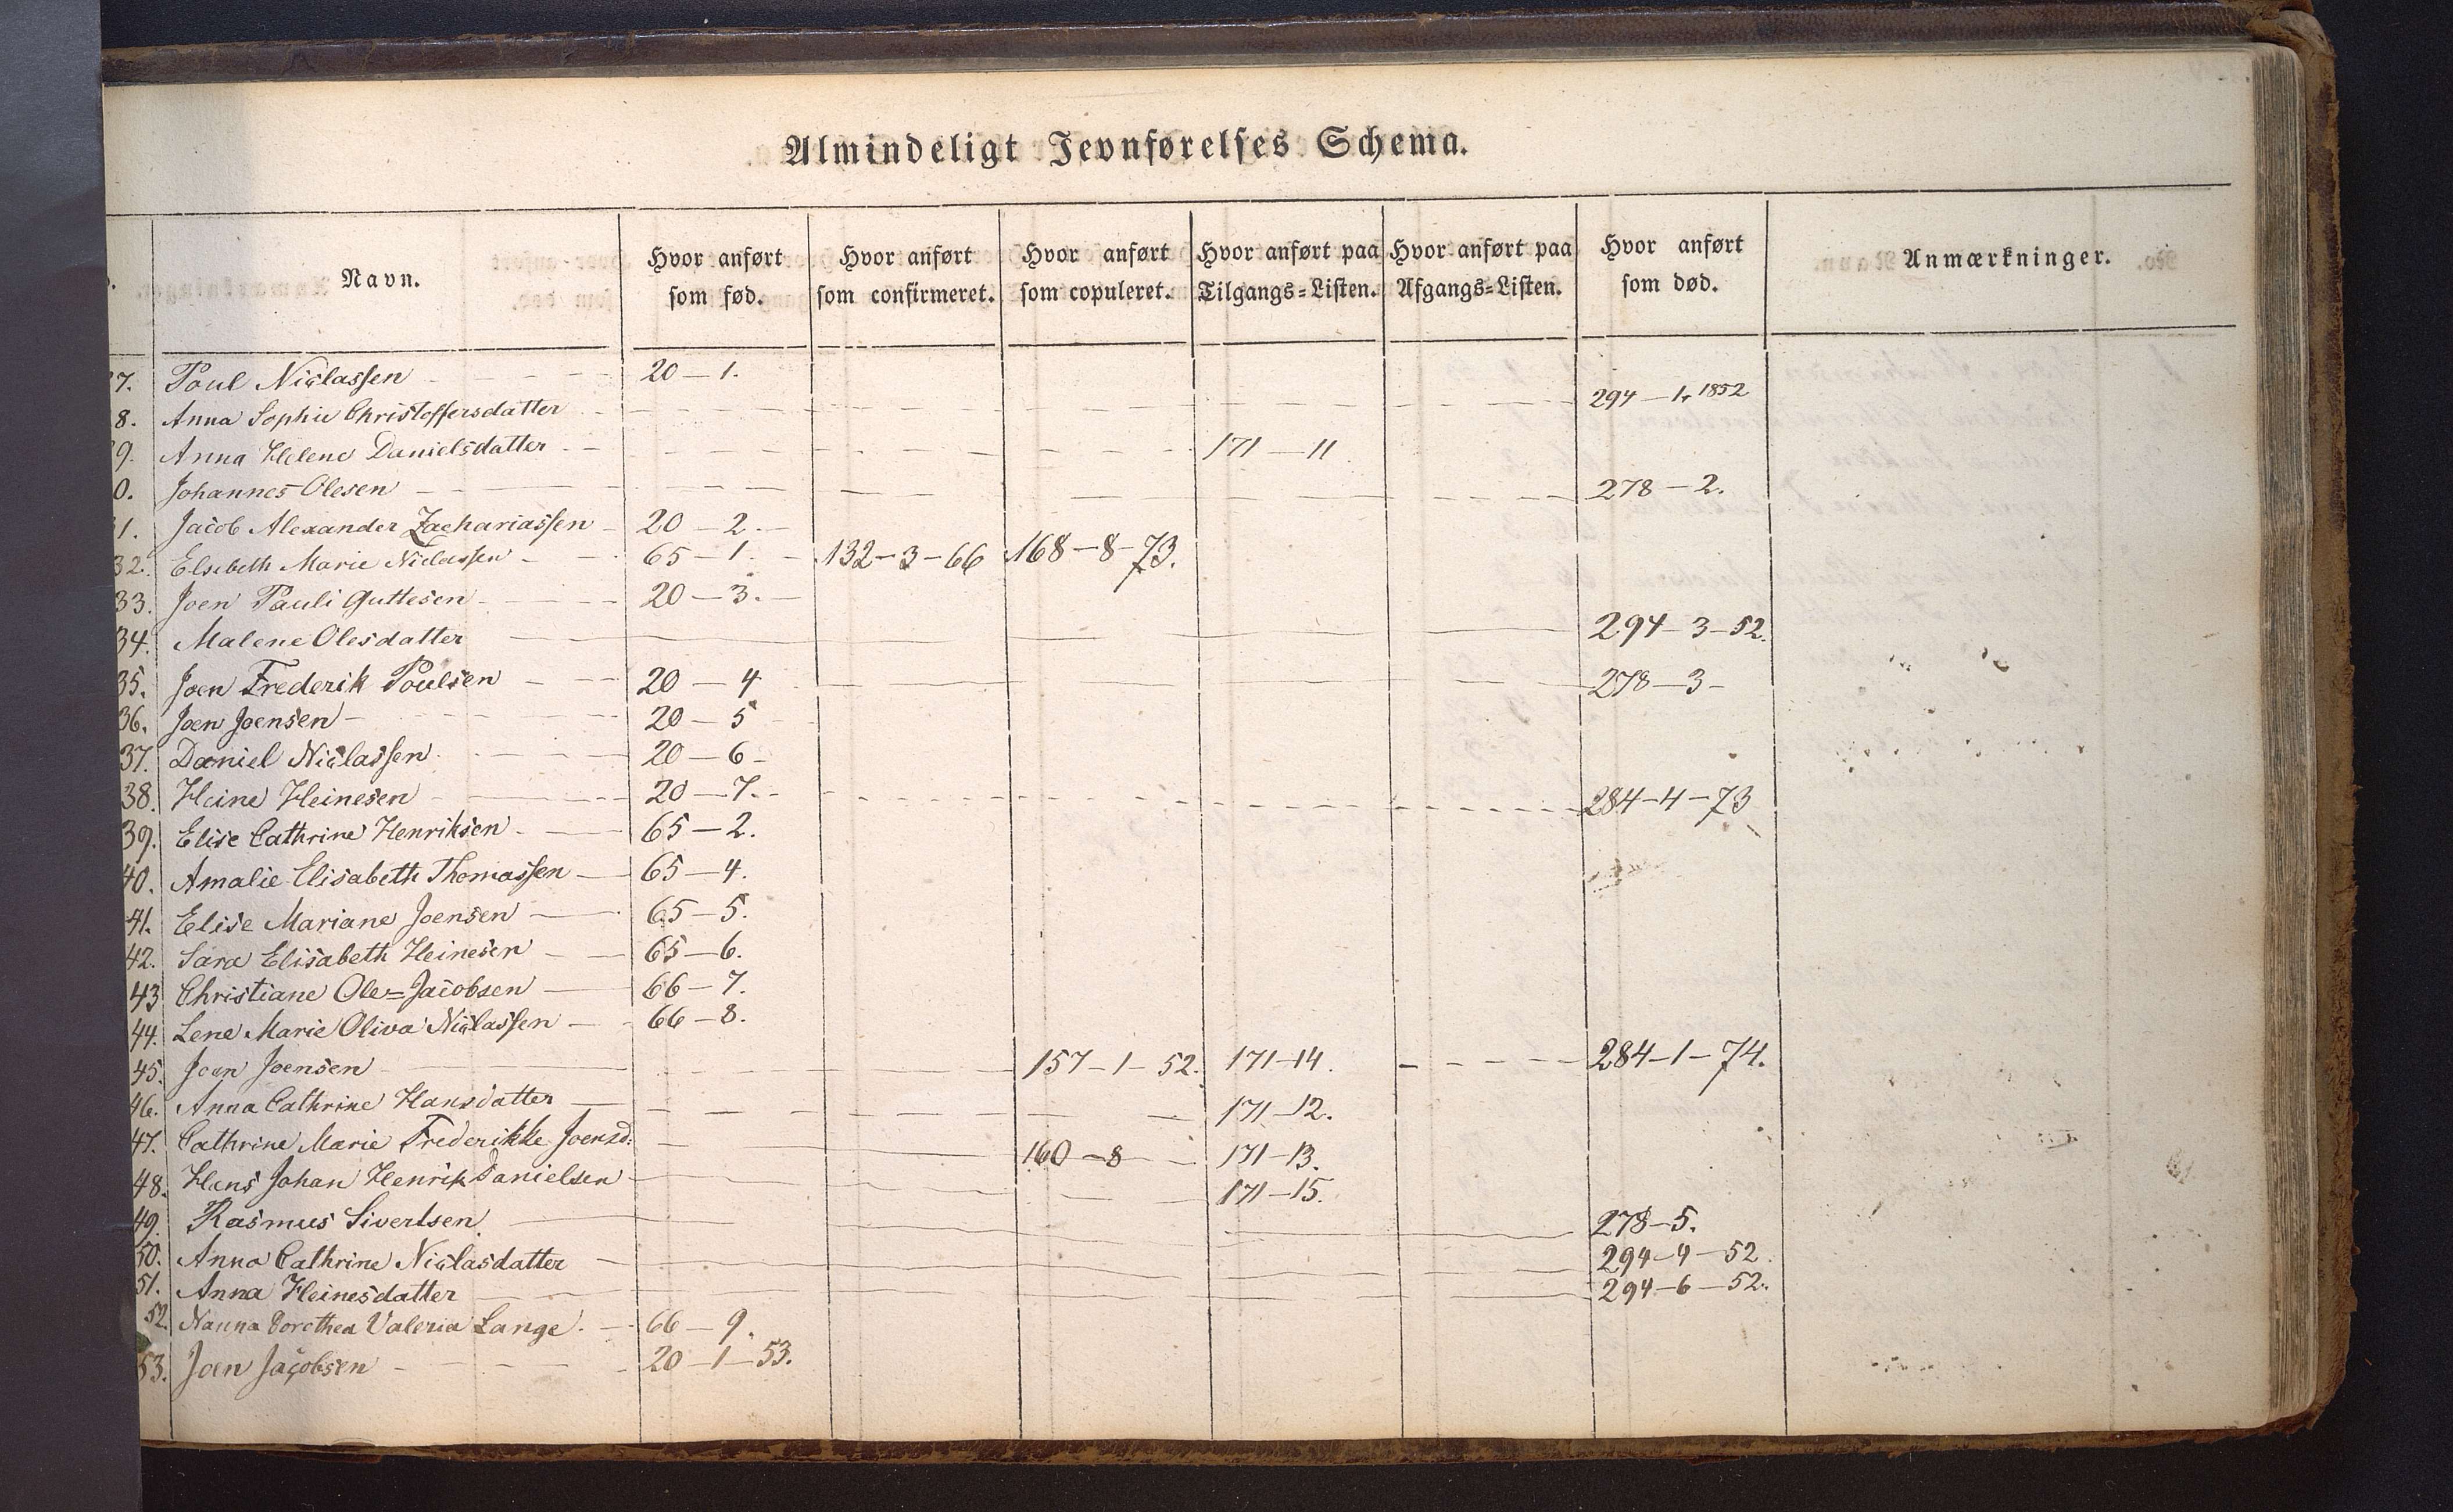 Almindeligt Jevnførelses Schema.
Navn. Hvor anført som fød. Hvor anført som confirmeret. Hvor anført som copuleret. Hvor anført paa Tilgangs=Listen. Hvor anført paa Afgangs=Listen. Hvor anført som død. Anmærkninger.
7. Poul Niclassen 20 — 1.
8. Anna Sophie Christoffersdatter 294 — 1, 1852
9. Anna Helene Danielsdatter 171 — 11
0. Johannes Olesen 278 — 2.
1. Jacob Alexander Zachariassen 20 — 2.
32. Elsebeth Marie Niclassen 65 — 1. 132 — 3 — 66 168 — 8 — 73.
33. Joen Pauli Guttesen 20 — 3.
34. Malene Olesdatter 294 — 3 — 52.
35. Joen Frederik Poulsen 20 — 4 278 — 3 —
36. Joen Joensen 20 — 5
37. Daniel Niclassen 20 — 6
38. Heine Heinesen 20 — 7. 284 — 4 — 73
39. Elise Cathrine Henriksen 65 — 2.
40. Amalie Elisabeth Thomassen 65 — 4.
41. Elise Mariane Joensen 65 — 5.
42. Sara Elisabeth Heinesen 65 — 6.
43 Christiane Ole=Jacobsen 66 — 7.
44. Lene Marie Oliva Niclassen 66 — 8.
45. Joen Joensen 157 — 1 — 52. 171 — 14. 284 — 1 — 74.
46. Anna Cathrine Hansdatter 171 — 12.
47. Cathrine Marie Frederikke Joensd: 160 — 8 171 — 13.
48. Hans Johan Henrik Danielsen 171 — 15.
49. Rasmus Sivertsen 278 — 5.
50. Anna Cathrine Niclasdatter 294 — 4 — 52.
51. Anna Heinesdatter 294 — 6 — 52.
52. Nanna Dorothea Valeria Lange 66 — 9.
53. Joen Jacobsen 20 — 1 — 53.